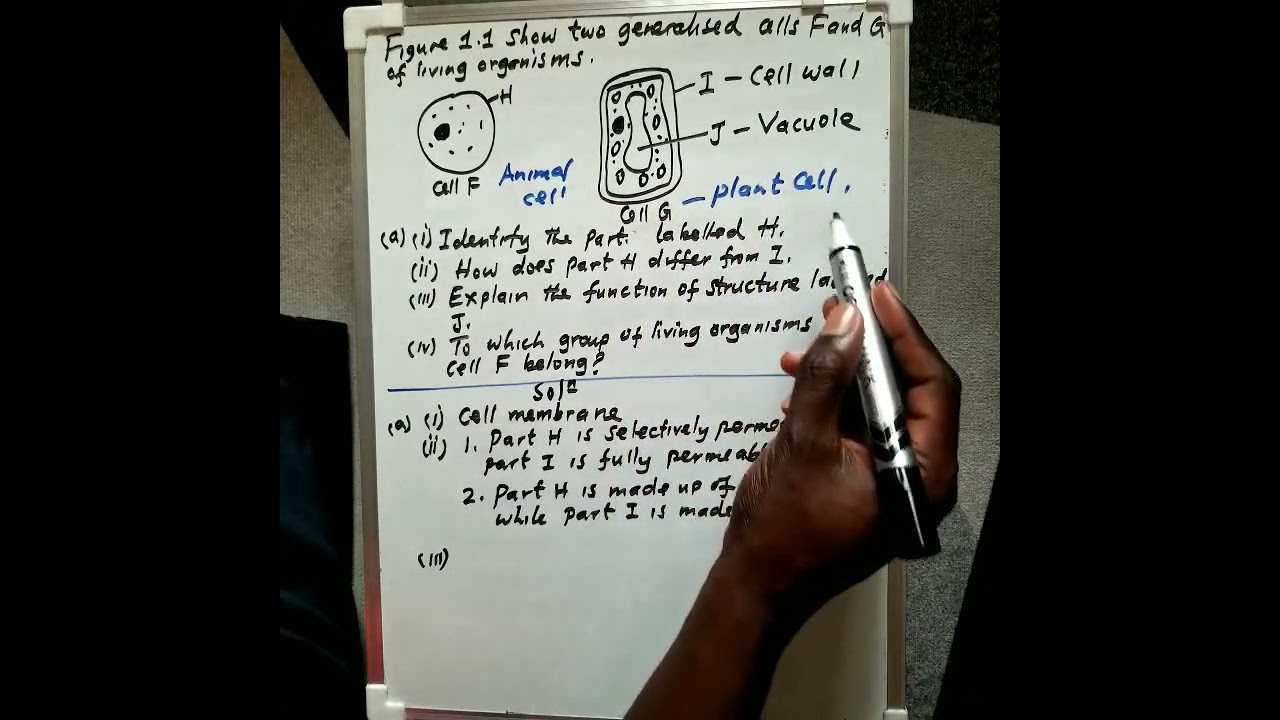 Figure 1.1 show two generalised cells F and G
of living organisms.
H
I - Cell wall
J - Vacuole
Cell F
Animal
cell
Cell G
- plant cell.
(a) (i) Identify the part labelled H.
(ii) How does part H differ from I.
(iii) Explain the function of structure
J.
(iv) To which group of living organisms
cell F belong?
Solⁿ
(a) (i) Cell membrane
(ii) 1. Part H is selectively
part I is fully
2. Part H is made up of
while part I is made
(iii)